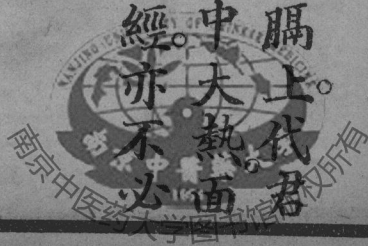 膈上。代君
中大熱。面
經。亦不必
南京中医药大学图书馆版权所有